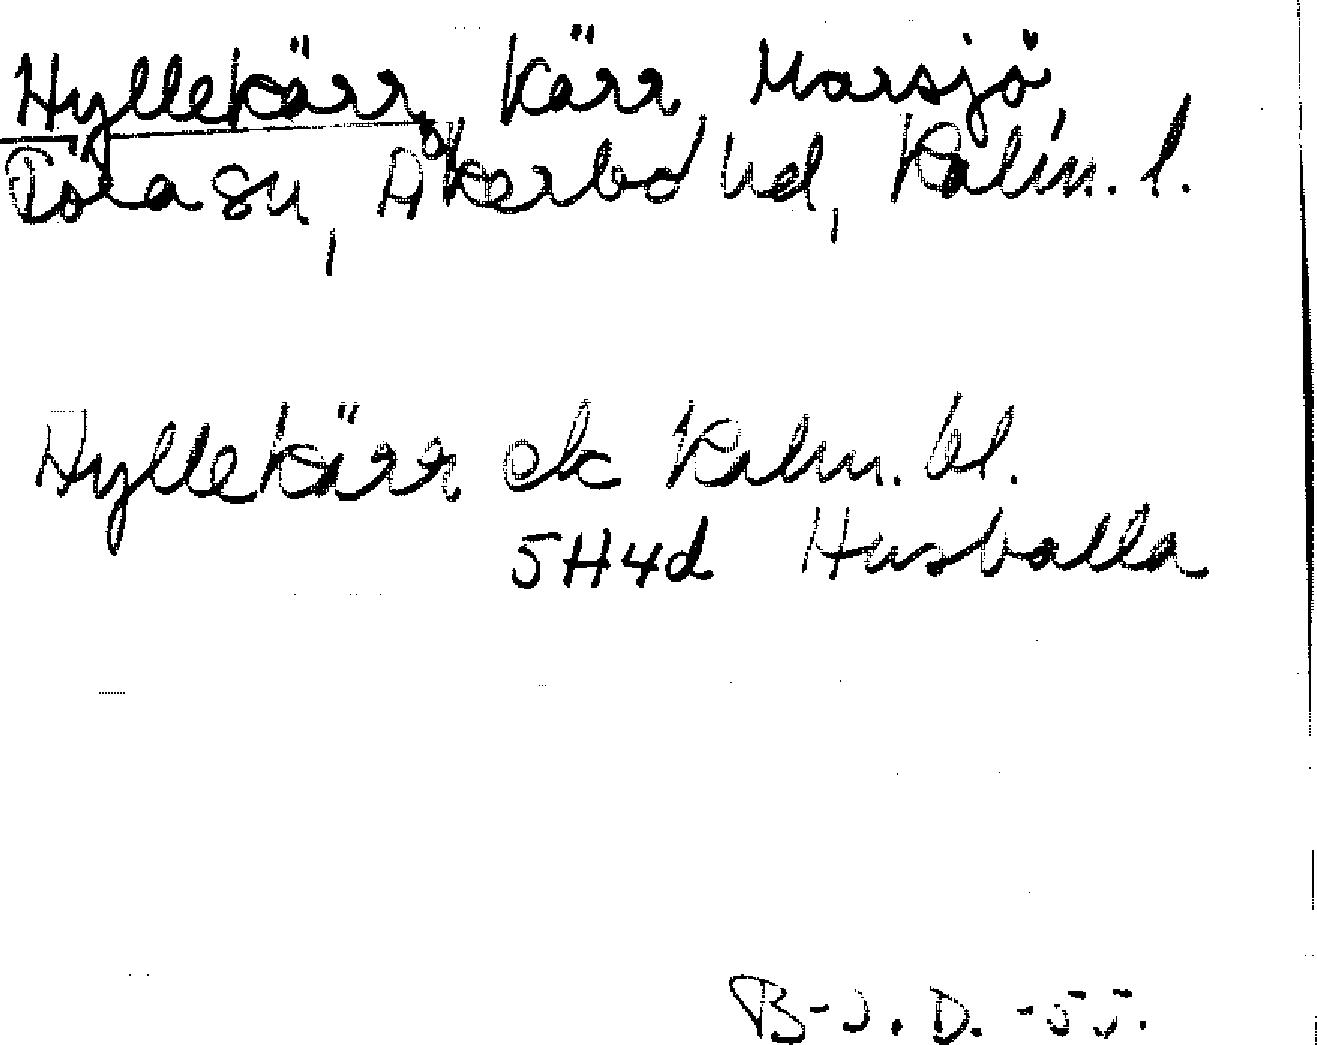 Hyllekärr, Kärr Marsjö
Döla sn, Åkerbo hd, Kalm. l.
Hyllekärr ek Kalm. bl.
5H4d Husvalla
B-J. D. -55.